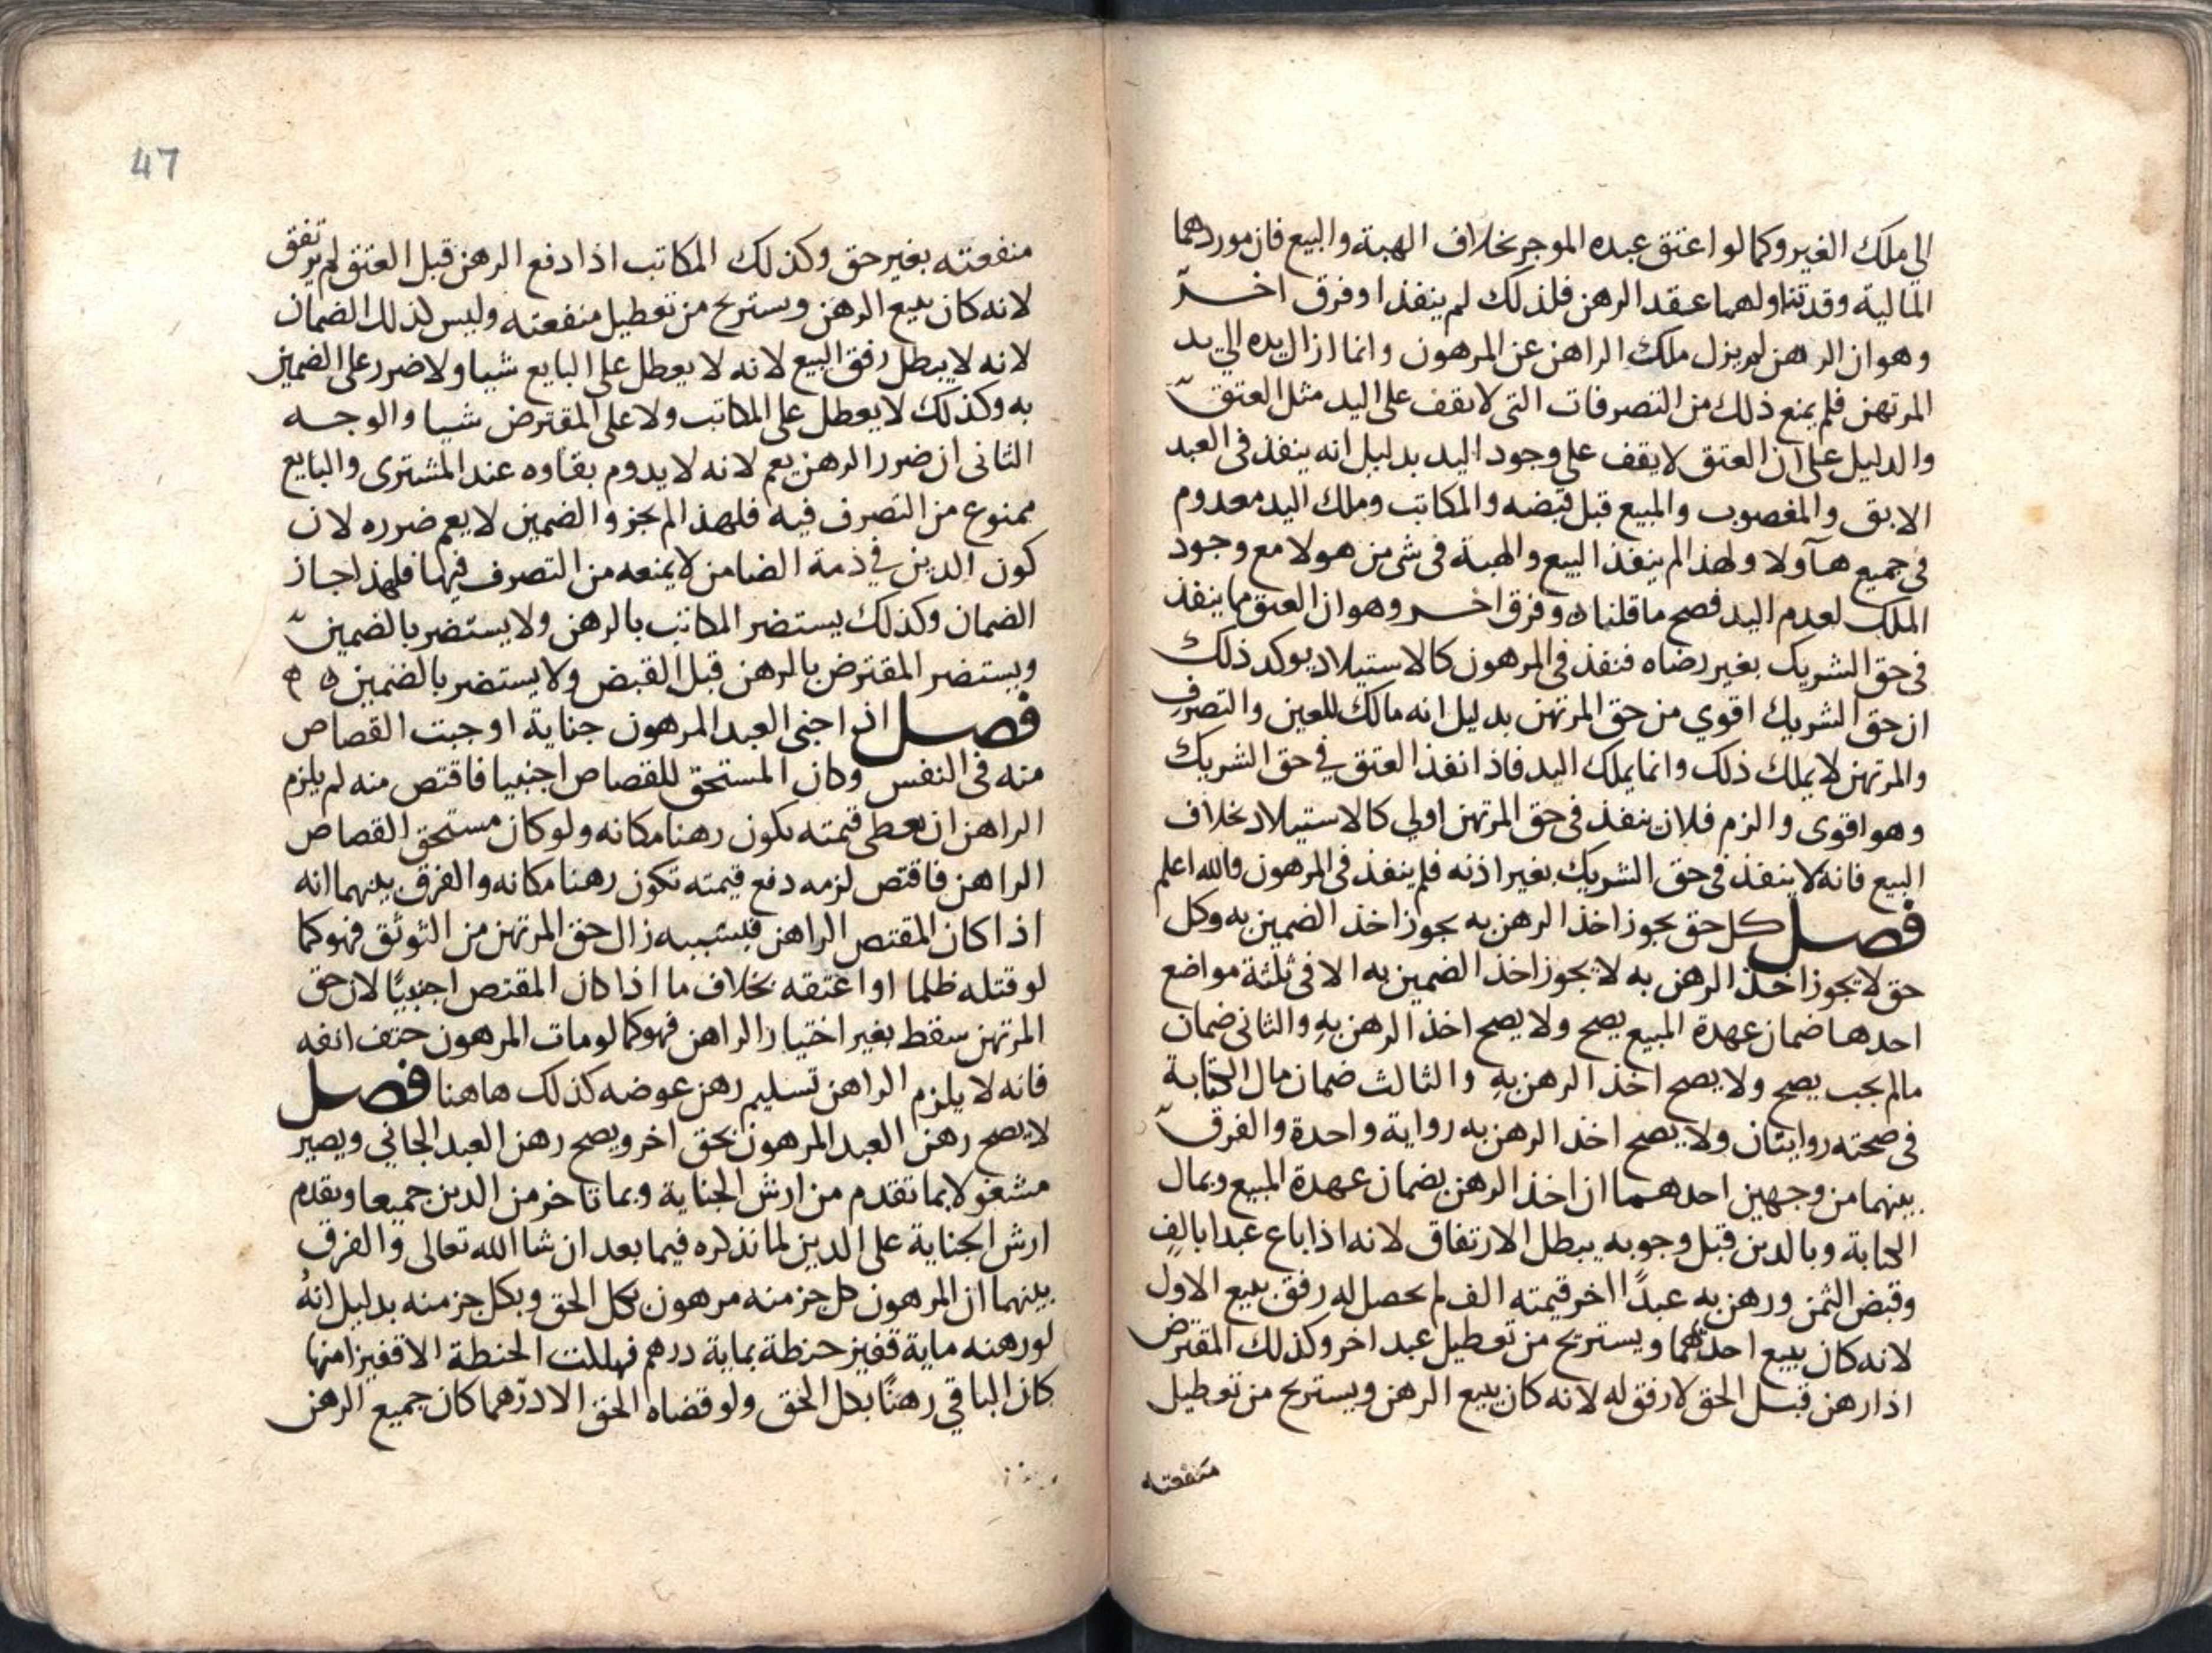 الي ملك الغير وكما لو اعتق عبده الموجر بخلاف الهبة والبيع فان موردهما
المالية وقد تناولهما عقد الرهن فلذلك لم ينفذا وفرق اخر
وهو ان الرهن لم يزل ملك الراهن عن المرهون وانما ازال يده الي يد
المرتهن فلم يمنع ذلك من التصرفات التي لا يقف على اليد مثل العتق
والدليل على ان العتق لا يقف علي وجود اليد بدليل انه ينفذ في العبد
الابق والمغصوب والمبيع قبل قبضه والمكاتب وملك اليد معدوم
في جميع هآولا ولهذا لم ينفذ البيع والهبة في شي من هولا مع وجود
الملك لعدم اليد فصح ما قلناه وفرق اخر وهو ان العتق مما ينفذ
في حق الشريك بغير رضاه فنفذ في المرهون كالاستيلاد يوكد ذلك
ان حق الشريك اقوي من حق المرتهن بدليل انه مالك للعين والتصرف
والمرتهن لا يملك ذلك وانما يملك اليد فاذا نفذ العتق في حق الشريك
وهو اقوى والزم فلان ينفذ في حق المرتهن اولي كالاستيلاد بخلاف
البيع فانه لا ينفذ في حق الشريك بغير اذنه فلم ينفذ في المرهون والله اعلم
فصل كل حق يجوز اخذ الرهن به يجوز اخذ الضمين به وكل
حق لا يجوز اخذ الرهن به لا يجوز اخذ الضمين به الا في ثلثة مواضع
احدها ضمان عهدة المبيع يصح ولا يصح اخذ الرهن به والثاني ضمان
مالم يجب يصح ولا يصح اخذ الرهن به والثالث ضمان مال الكتابة
في صحته روايتان ولا يصح اخذ الرهن به رواية واحدة والفرق
بينهما من وجهين احدهما ان اخذ الرهن بضمان عهدة المبيع وبمال
الكتابة وبالدين قبل وجوبه يبطل الارتفاق لانه اذا باع عبدا بالف
وقبض الثمن ورهن به عبدًا اخر قيمته الف لم يحصل له رفق ببيع الاول
لانه كان يبيع احدهما ويستريح من تعطيل عبد اخر وكذلك المقترض
اذا رهن قبل الحق لا رفق له لانه كان يبيع الرهن ويستريح من تعطيل
منفعته
47
منفعته بغير حق وكذلك المكاتب اذا دفع الرهن قبل العتق لم يرتفق
لانه كان يبيع الرهن ويستريح من تعطيل منفعته وليس كذلك الضمان
لانه لا يبطل رفق البيع لانه لا يعطل على البايع شيا ولا ضرر على الضمين
به وكذلك لا يعطل على المكاتب ولا على المقترض شيا والوجه
الثاني ان ضرر الرهن يعم لانه لا يدوم بقاوه عند المشتري والبايع
ممنوع من التصرف فيه فلهذا لم يجز والضمين لا يعم ضرره لان
كون الدين في ذمة الضامن لا يمنعه من التصرف فيها فلهذا جاز
الضمان وكذلك يستضر المكاتب بالرهن ولا يستضر بالضمين
ويستضر المقترض بالرهن قبل القبض ولا يستضر بالضمين ه ه
فصل اذا جنى العبد المرهون جناية اوجبت القصاص
منه في النفس وكان المستحق للقصاص اجنبيا فاقتص منه لم يلزم
الراهن ان يعطى قيمته يكون رهنا مكانه ولو كان مستحق القصاص
الراهن فاقتص لزمه دفع قيمته تكون رهنا مكانه والفرق بينهما انه
اذا كان المقتص الراهن فبسببه زال حق المرتهن من التوثق فهو كما
لو قتله ظلما او اعتقه بخلاف ما اذا كان المقتص اجنبيًا لان حق
المرتهن سقط بغير اختيار الراهن فهو كما لو مات المرهون حتف انفه
فانه لا يلزم الراهن تسليم رهن عوضه كذلك هاهنا فصل
لا يصح رهن العبد المرهون بحق اخر ويصح رهن العبد الجاني ويصير
مشغولا بما تقدم من ارش الجناية وبما تاخر من الدين جميعا ويقدم
ارش الجناية على الدين لما نذكره فيما بعد ان شا الله تعالى والفرق
بينهما ان المرهون كل جز منه مرهون بكل الحق وبكل جز منه بدليل انهُ
لو رهنه ماية قفيز حنطة بماية درهم فهلكت الحنطة الا قفيزا منها
كان الباقي رهنًا بكل الحق ولو قضاه الحق الا درهما كان جميع الرهن